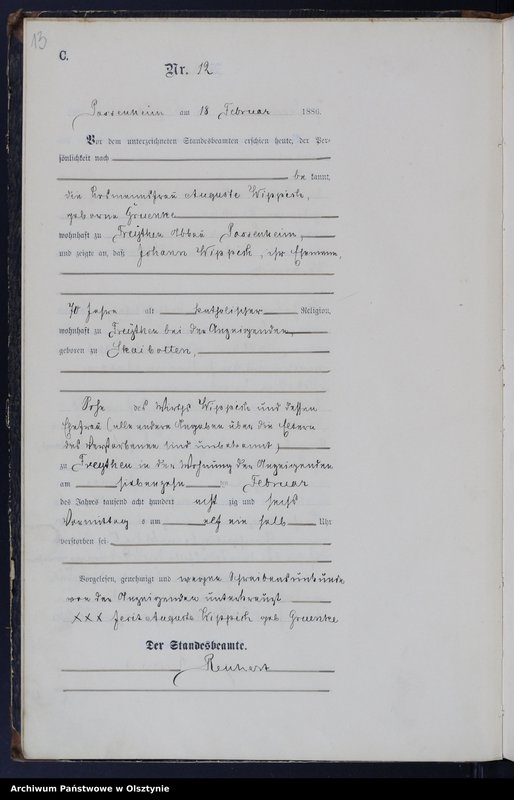 13
C.
Nr. 12
Passenheim am 18 Februar 1886.
Vor dem unterzeichneten Standesbeamten erschien heute, der Per-
sönlichkeit nach
be kannt,
die Losmannsfrau Auguste Wippich,
geborne Gruenke
wohnhaft zu Freythen Abbau Passenheim,
und zeigte an, daß Johann Wippich, ihr Ehemann,
70 Jahre alt katholischer Religion,
wohnhaft zu Freythen bei der Anzeigenden,
geboren zu Skaibotten,
Sohn des Wirths Wippich und dessen
Ehefrau (alle andere Angaben über die Eltern
des Verstorbenen sind unbekannt)
zu Freythen in der Wohnung der Anzeigenden
am siebenzehn ten Februar
des Jahres tausend acht hundert acht zig und sechs
Vormittag s um elf ein halb Uhr
verstorben sei.
Vorgelesen, genehmigt und wegen Schreibensunkunde
von der Anzeigenden unterkreuzt
XXX Auguste Wippich geb. Gruenke
Der Standesbeamte.
Archiwum Państwowe w Olsztynie